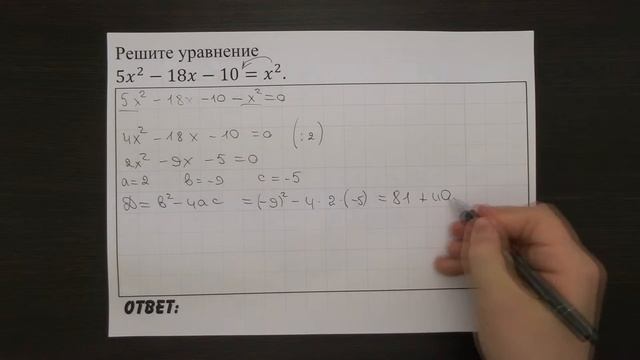 Решите уравнение
5x² − 18x − 10 = x².
5x² - 18x - 10 - x² = 0
4x² - 18x - 10 = 0 (:2)
2x² - 9x - 5 = 0
a = 2 b = -9 c = -5
D = b² - 4ac = (-9)² - 4 · 2 · (-5) = 81 + 40
ОТВЕТ: